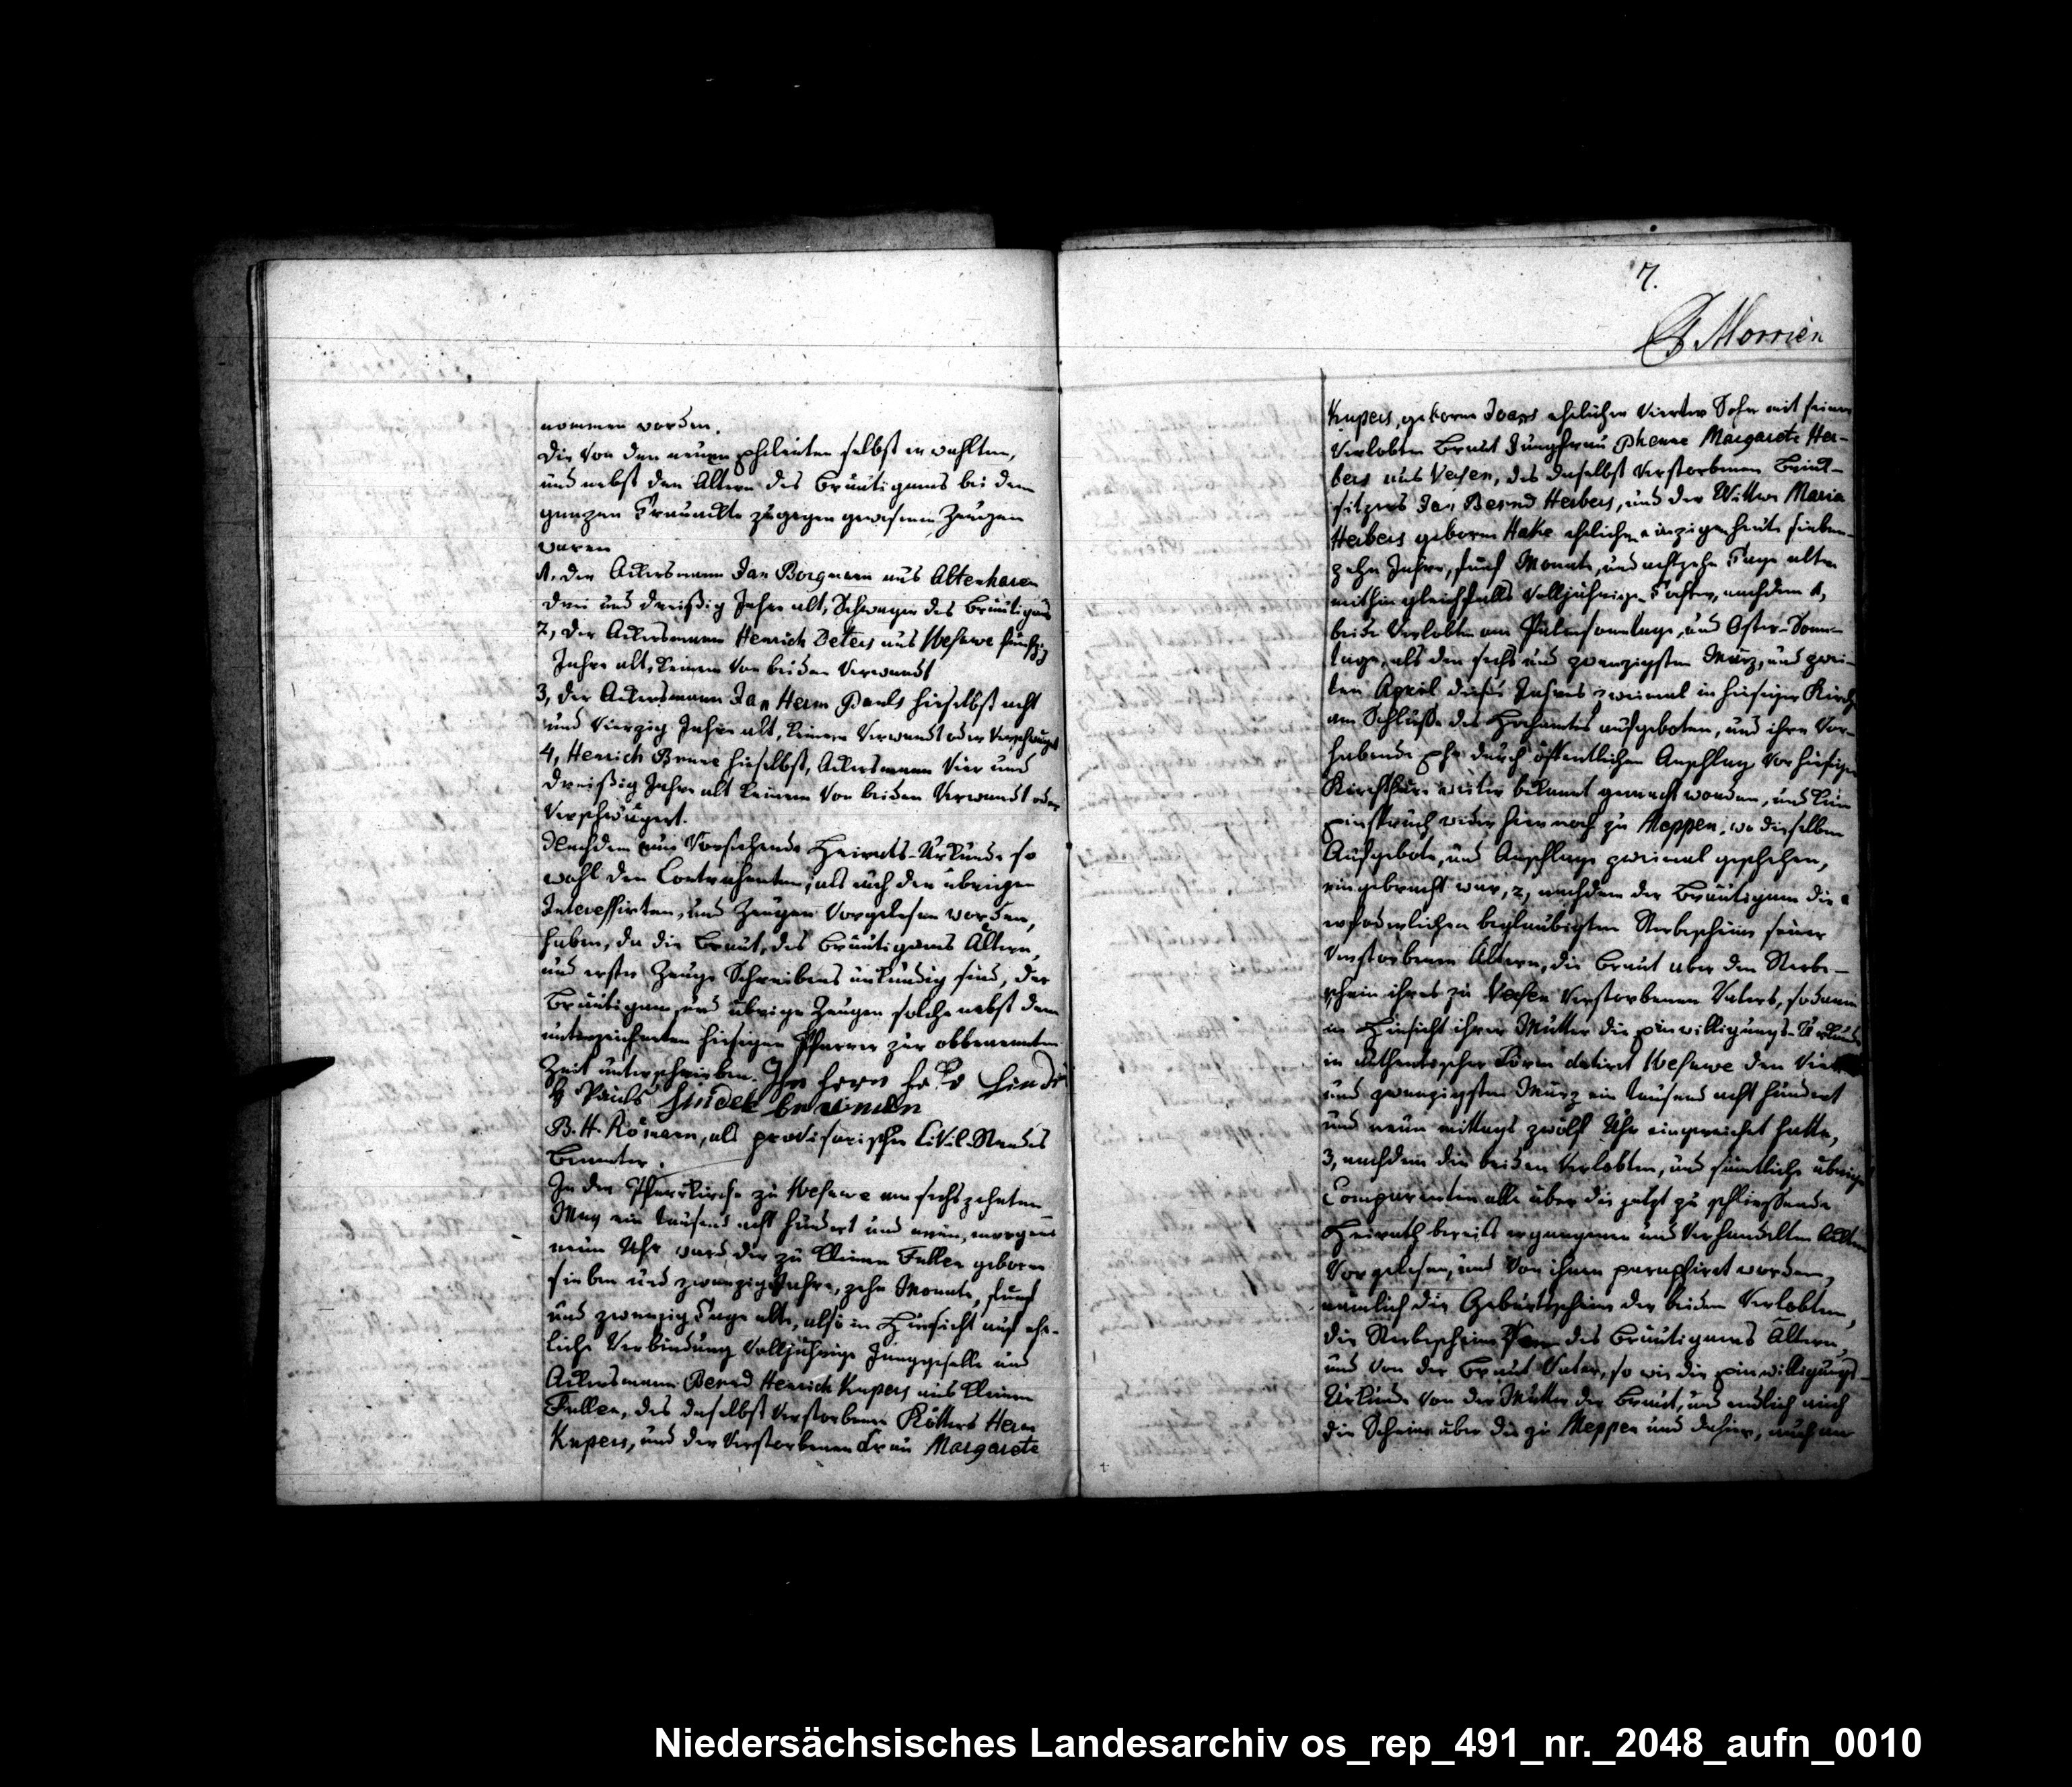 nommen worden.
Die von den neuen Eheleuten selbst erwahlten,
und nebst den Ältern des Bräutigams bei dem
ganzen Trauackte zugegen gewesenen Zeugen
waren
1, der Ackersmann Jan Borgmann aus Altenharen
drei und dreißig Jahre alt, Schwager des Bräutigams
2, der Ackersmann Henrich Deters aus Wesuwe fünfzig
Jahre alt, keinem von beiden verwandt
3, der Ackersmann Jan Herm Pauls hieselbst acht
und vierzig Jahre alt, keinem verwandt oder verschwägert
4, Henrich Brune hieselbst, Ackersmann vier und
dreißig Jahre alt keinem von beiden verwandt oder
verschwägert.
Nachdem nun vorstehende Heirats-Urkunde so
wohl den Contrahenten, als auch den übrigen
Interessirten, und Zeugen vorgelesen worden,
haben, da die Braut, des Bräutigams Ältern,
und erster Zeuge Schreibens unkundig sind, der
Bräutigam, und übrige Zeugen solche nebst dem
unterzeichneten hiesigen Pfarrer zur obbenannten
Zeit unterschrieben.
H Pauls
B. H. Rösmann, als provisorischer Civil-Standes
Beamter.
In der Pfarrkirche zu Wesuwe am sechszehnten
May ein tausend acht hundert und neun, morgens
neun Uhr ward der zu kleinen Fullen geborne
sieben und zwanzig Jahre, zehn Monate, fünf
und zwanzig Tage alte, also in Hinsicht auf ehe-
liche Verbindung volljährige Junggeselle und
Ackersmann Bernd Henrich Knpers aus kleinen
Fullen, des daselbst verstorbenen Kötters Herm
Knpers, und der verstorbenen Frau Margarete
7.
Morrien
Knpers, geborne ehelicher vierter Sohn mit seiner
verlobten Braut Jungfrau Phenne Margarete Her-
bers aus Versen, des daselbst verstorbenen Brink-
sitzers Jan Bernd Herbers, und der Wittwe Maria
Herbers geborne Hake eheliche einzige heute sieben-
zehn Jahre, fünf Monate, und achtzehn Tage alten
mithin gleichfalls volljährigen Tochter, nachdem 1,
beide Verlobten am Palmsonntage, und Oster-Sonn-
tage, als den sechs und zwanzigsten März, und zwei-
ten April dieses Jahres zweimal in hiesiger Kirche
am Schluße des Hochamtes aufgeboten, und ihre vor-
habende Ehe durch öffentlichen Anschlag vor hiesiger
Kirchthüre weiter bekannt gemacht worden, und kein
Einspruch weder hier noch zu Meppen, wo dieselben
Aufgebote, und Anschlage zweimal geschehen,
eingebracht war, 2, nachdem der Bräutigam die
erfoderlichen beglaubigten Sterbescheine seiner
verstorbenen Ältern, die Braut aber den Sterbe-
schein ihres zu Versen verstorbenen Vaters, sodann
in Hinsicht ihrer Mutter die Einwilligungs-Urkunde
in authentischer Form datirt Wesuwe den vier
und zwanzigsten März ein tausend acht hundert
und neun mittags zwölf Uhr eingereichet hatte,
3, nachdem die beiden Verlobten, und sämtliche übrige
Comparenten alle über die jetzt zu schliessende
Heirath bereits ergangenen und verhandelten Akten
vorgelesen, und von ihnen paraphiret worden,
nämlich die Geburtsscheine der beiden Verlobten,
die Sterbescheine von des Bräutigams Ältern,
und von der Braut Vater, so wie die Einwilligungs-
Urkunde von der Mutter der Braut, und endlich auch
die Scheine über die zu Meppen und dahier, auch an
Niedersächsisches Landesarchiv os_rep_491_nr._2048_aufn_0010